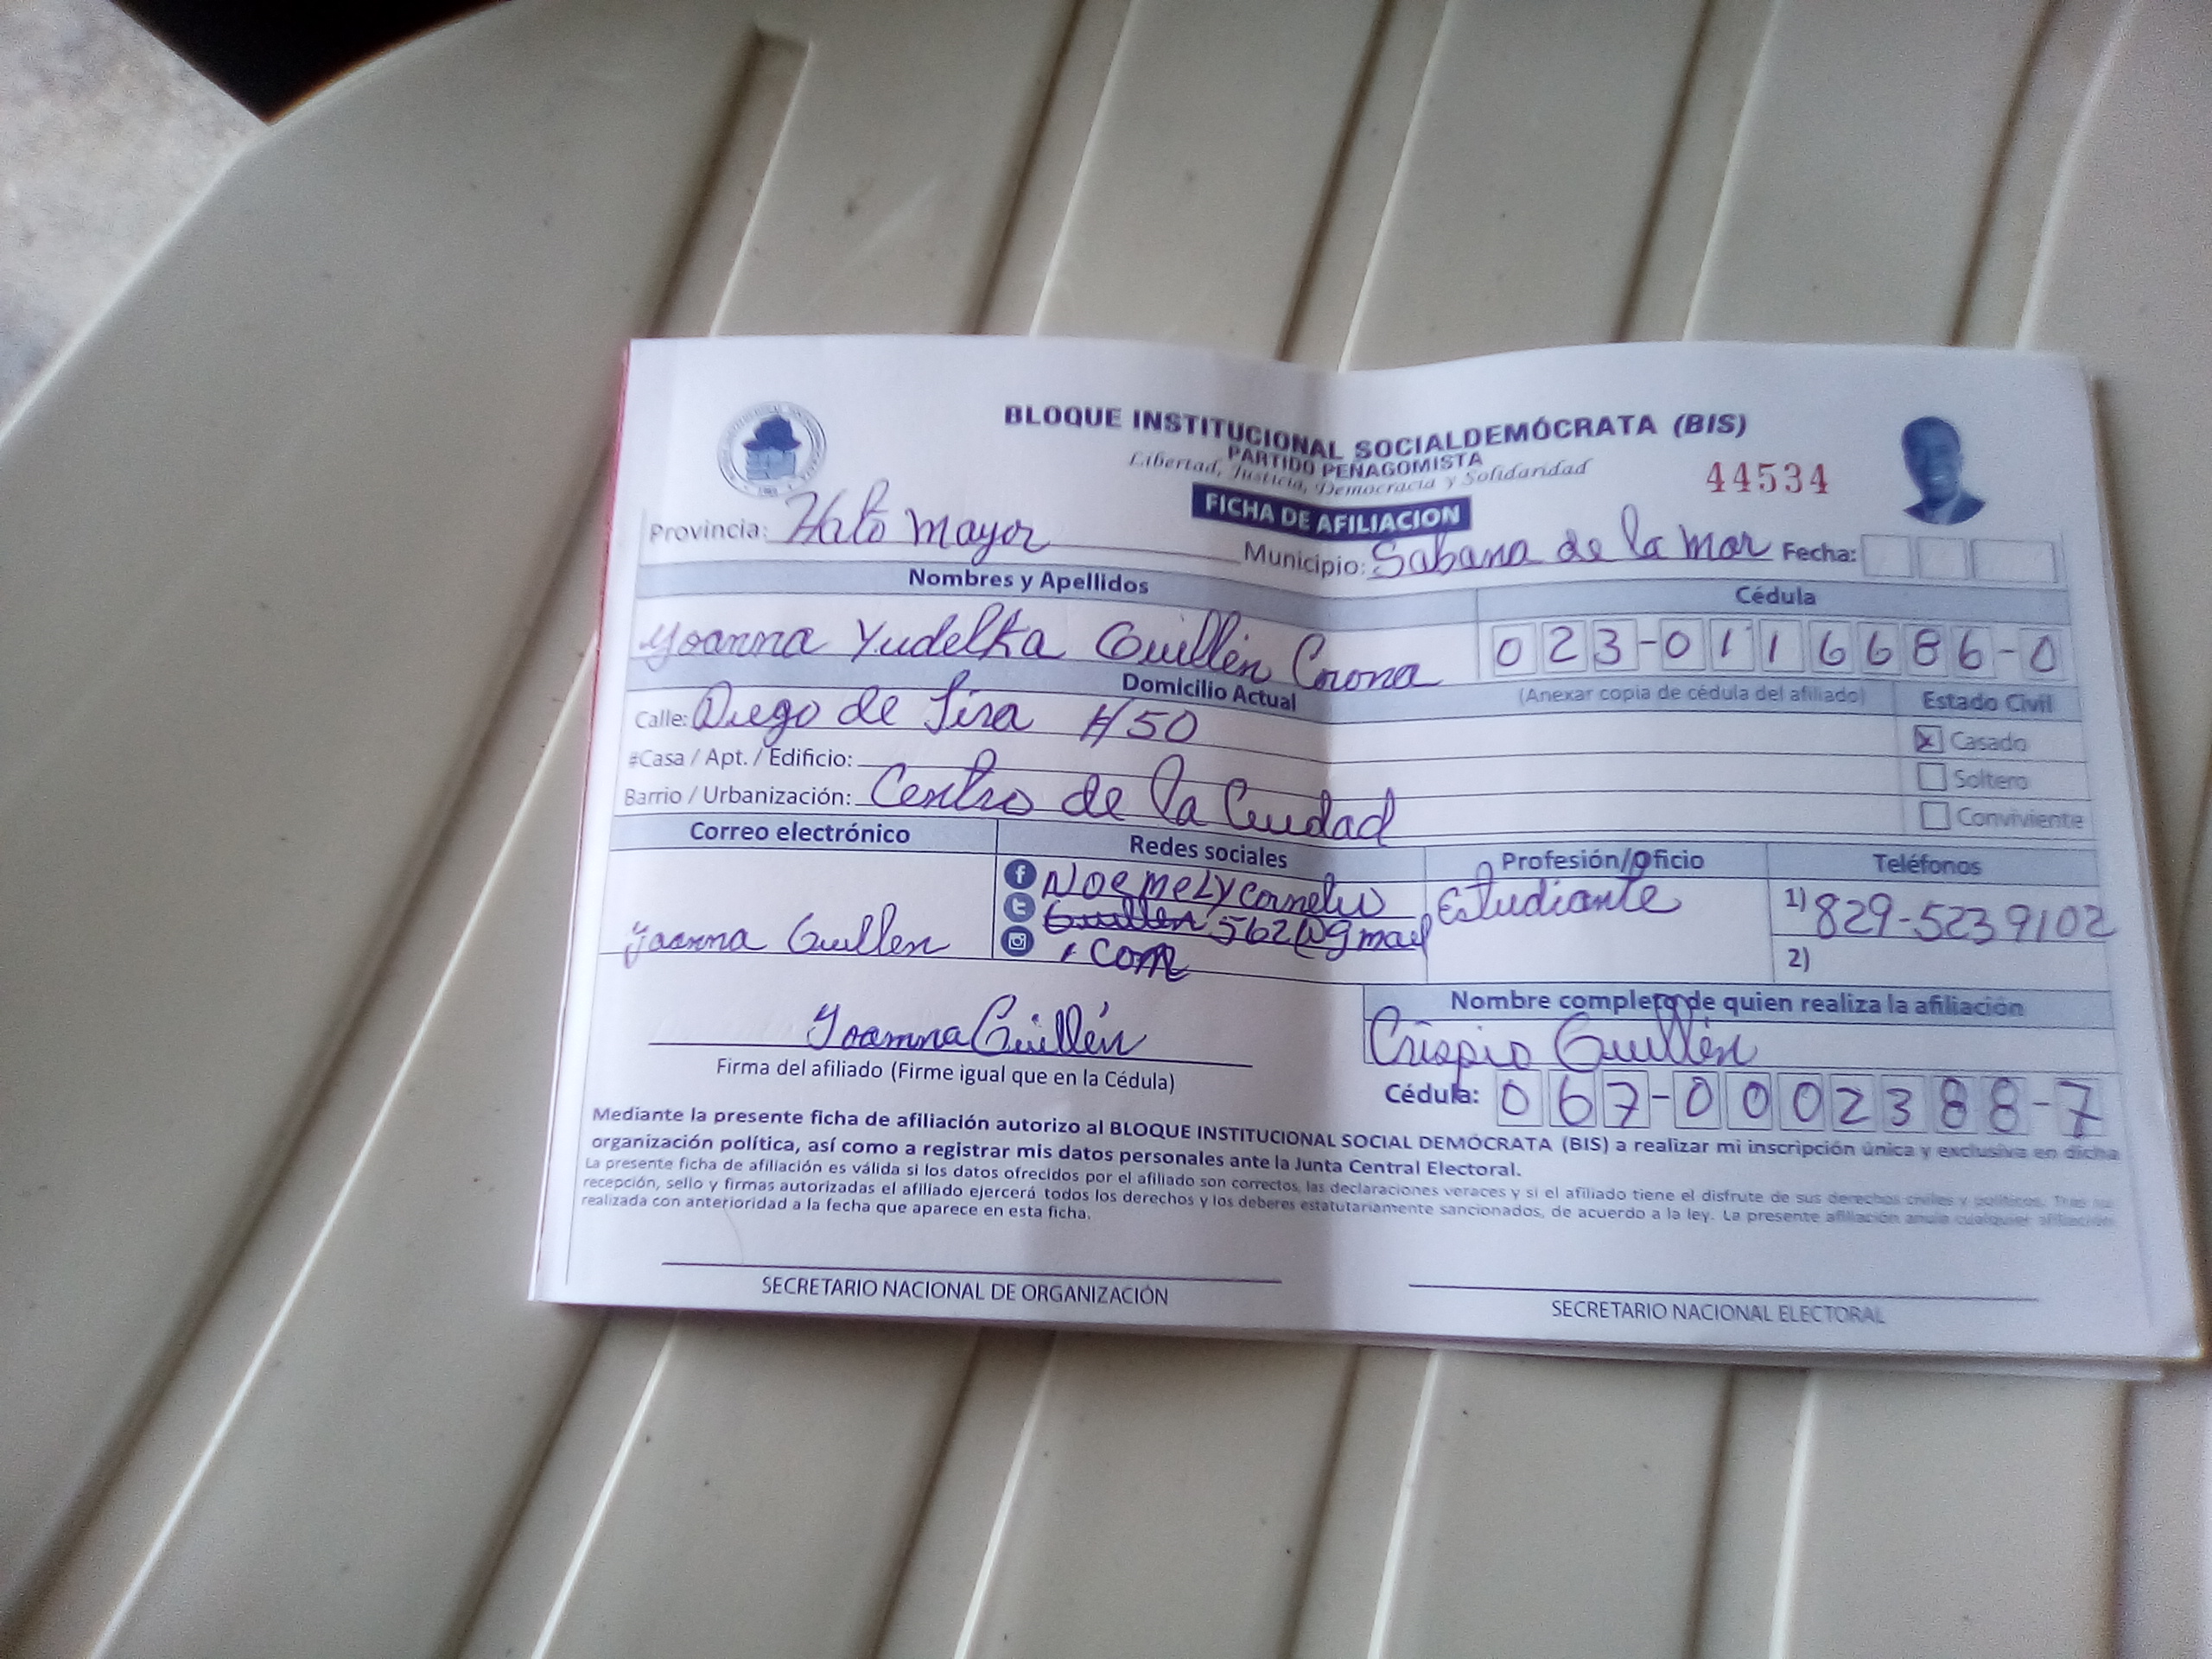 BLOQUE INSTITUCIONAL SOCIALDEMÓCRATA (BIS)
PARTIDO PEÑAGOMISTA
Libertad, Justicia, Democracia y Solidaridad
44534
FICHA DE AFILIACION
Provincia: Hato mayor Municipio: Sabana de la mar Fecha:
Nombres y Apellidos Cédula
Yoanna Yudelka Guillén Corona 023-0116686-0
Domicilio Actual (Anexar copia de cédula del afiliado) Estado Civil
Calle: Diego de Lira #50
x Casado
#Casa / Apt. / Edificio:
Soltero
Barrio / Urbanización: Centro de la Ciudad
Conviviente
Correo electrónico Redes sociales Profesión/Oficio Teléfonos
Noemely Estudiante 1) 829-5239102
Yoanna Guillen 562@gmail
.com 2)
Nombre completo de quien realiza la afiliación
Yoanna Guillén Crispio Guillén
Firma del afiliado (Firme igual que en la Cédula)
Cédula: 067-0002388-7
Mediante la presente ficha de afiliación autorizo al BLOQUE INSTITUCIONAL SOCIAL DEMÓCRATA (BIS) a realizar mi inscripción única y exclusiva en dicha
organización política, así como a registrar mis datos personales ante la Junta Central Electoral.
La presente ficha de afiliación es válida si los datos ofrecidos por el afiliado son correctos, las declaraciones veraces y si el afiliado tiene el disfrute de sus derechos civiles y políticos. Tras su
recepción, sello y firmas autorizadas el afiliado ejercerá todos los derechos y los deberes estatutariamente sancionados, de acuerdo a la ley. La presente afiliación anula cualquier afiliación
realizada con anterioridad a la fecha que aparece en esta ficha.
SECRETARIO NACIONAL DE ORGANIZACIÓN SECRETARIO NACIONAL ELECTORAL